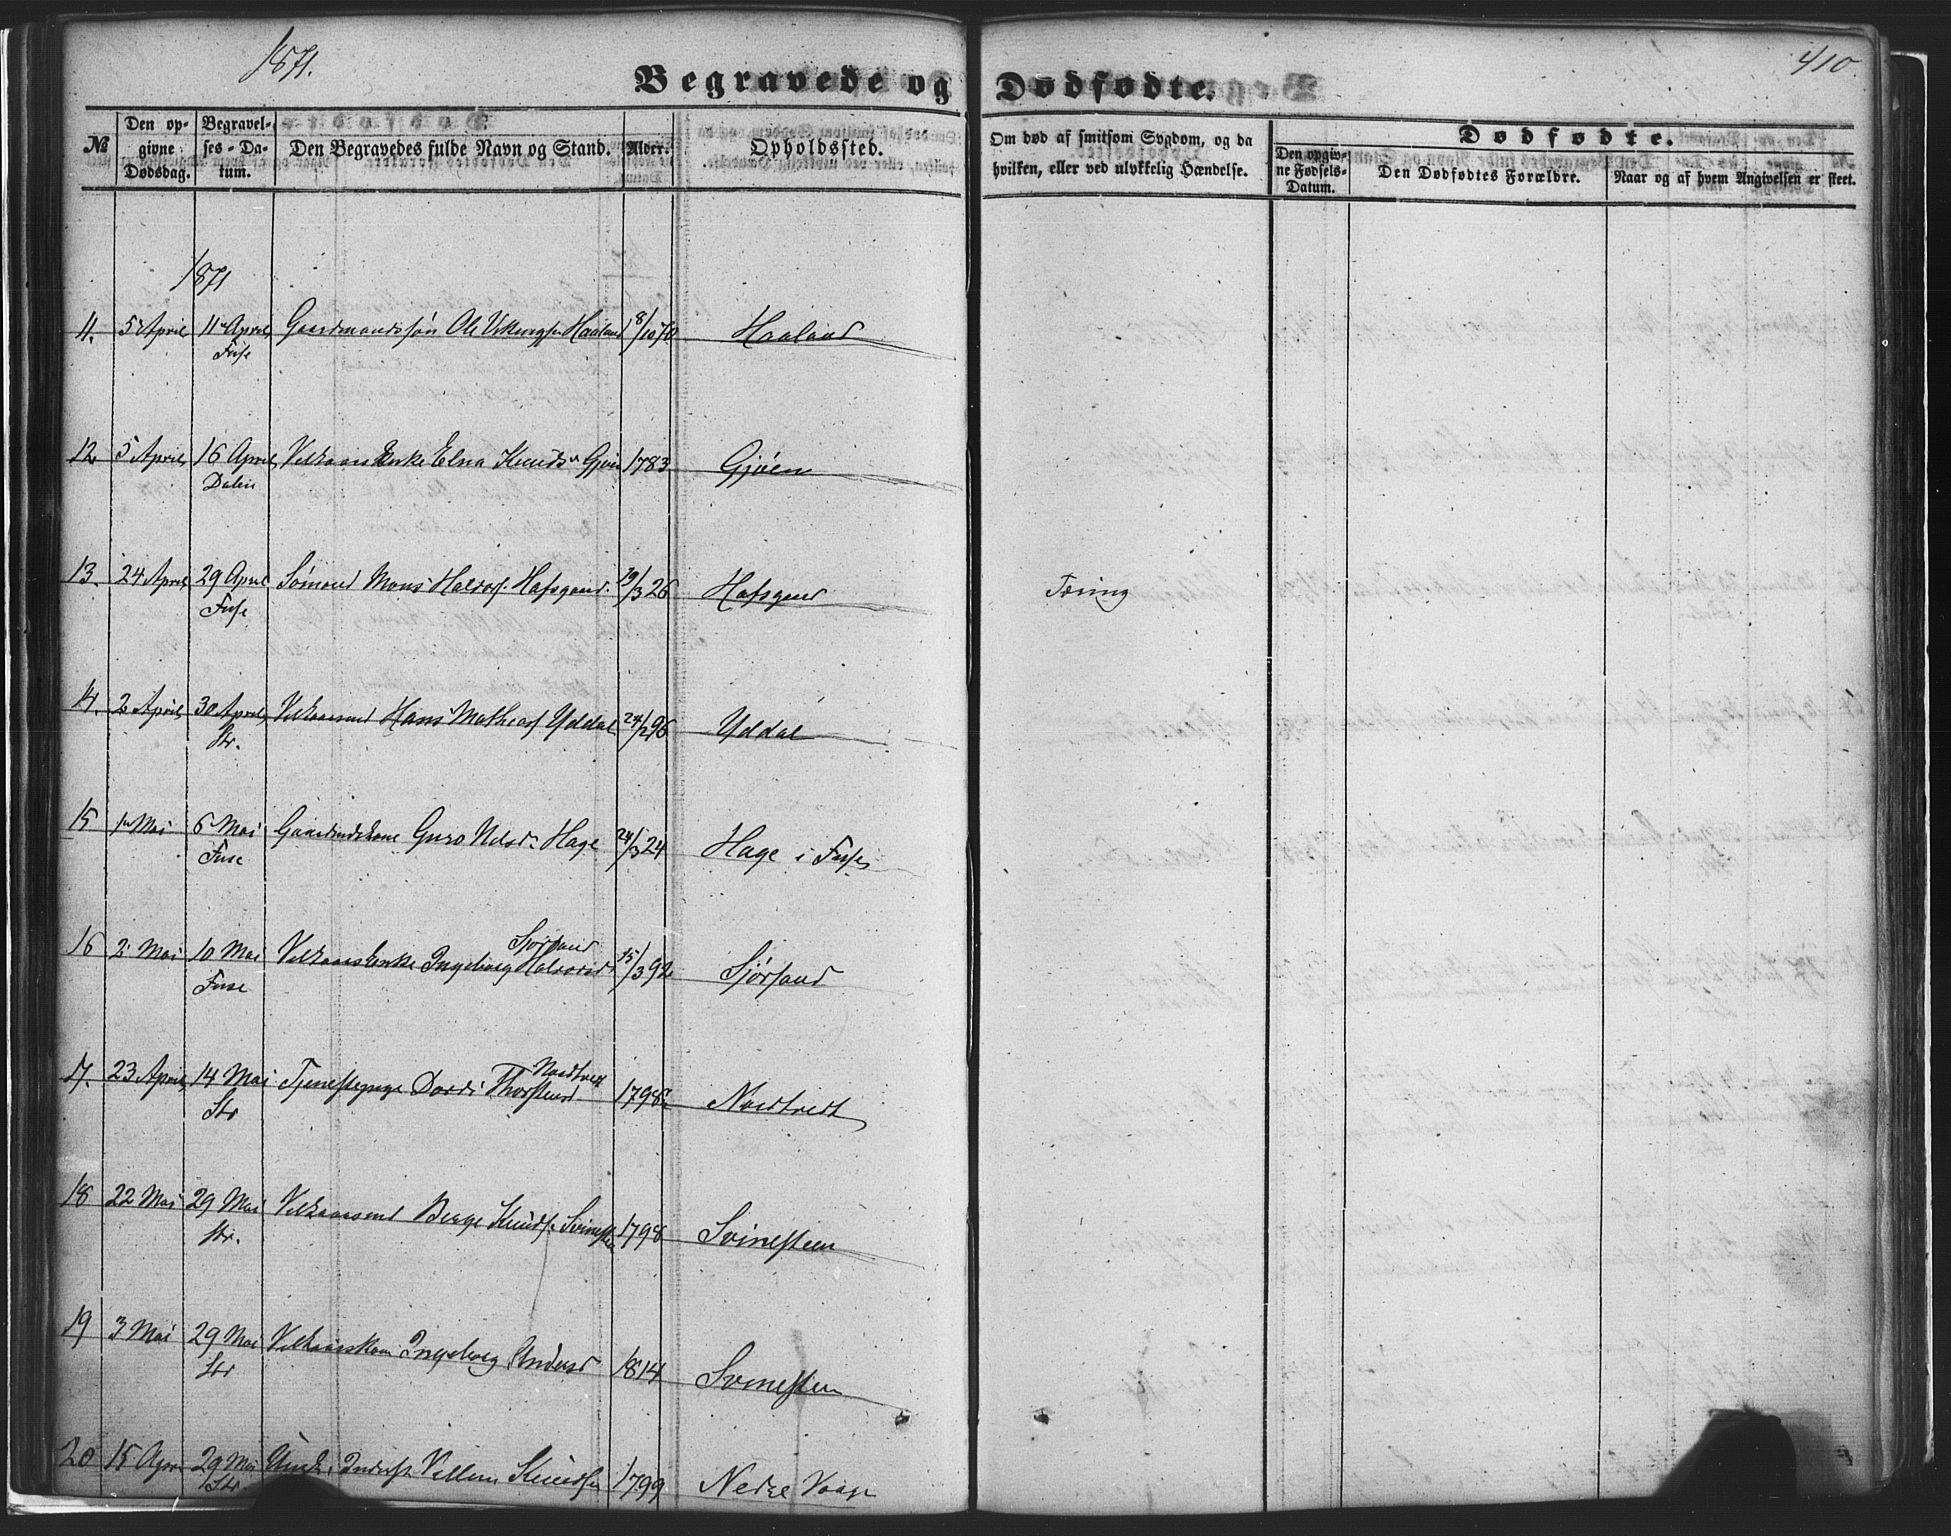 1871.
410
Begravede og Dødfødte.
№
Den opgivne Dødsdag.
Begravelses-Datum.
Den Begravedes fulde Navn og Stand.
Alder.
Opholdssted.
Om død af smitsom Sygdom, og da hvilken, eller ved ulykkelig Hændelse.
Dødfødte.
Den opgivne Fødsels-Datum.
Den Dødfødtes Forældre.
Naar og af hvem Angivelsen er skeet.
1871
11. 5 April 11 April Gaardmandssøn Ole Haaland 8/10 70 Haaland
Fuse
12 5 April 16 April Vilkaars Enke Elna Knuds Gjøen 1783 Gjøen
Dalen
13. 24 April 29 April Mons Halvors. Hafsgaard 19/3 26 Hafsgaard Tæring
Fuse
14. 2 April 30 April Vilkaarsmd Hans Mathias Yddal 24/2 96 Yddal
Str.
15 1 Mai 6 Mai Gaardmdskone Guro Nilsd. Hage 24/3 24 Hage i Fuse
Fuse
Sjørsand
16 2 Mai 10 Mai Vilkaarsenke Ingeborg Halvorsd 15/3 92 Sjørsand
Fuse
Nordtvedt
17. 23 April 14 Mai Tjenestepige Dordi Thorstensd 1798 Nordtvedt
Str
18 22 Mai 29 Mai Vilkaarsmd Berge Knuds. Svinesteen 1798 Svinesteen
Str.
19 3 Mai 29 Mai Vilkaarskone Ingeborg Andersd 1814 Svinesteen
Str
20 15 Apr 29 Mai Inderst Villum Knudsen 1799 Nedre Vaage
Str.